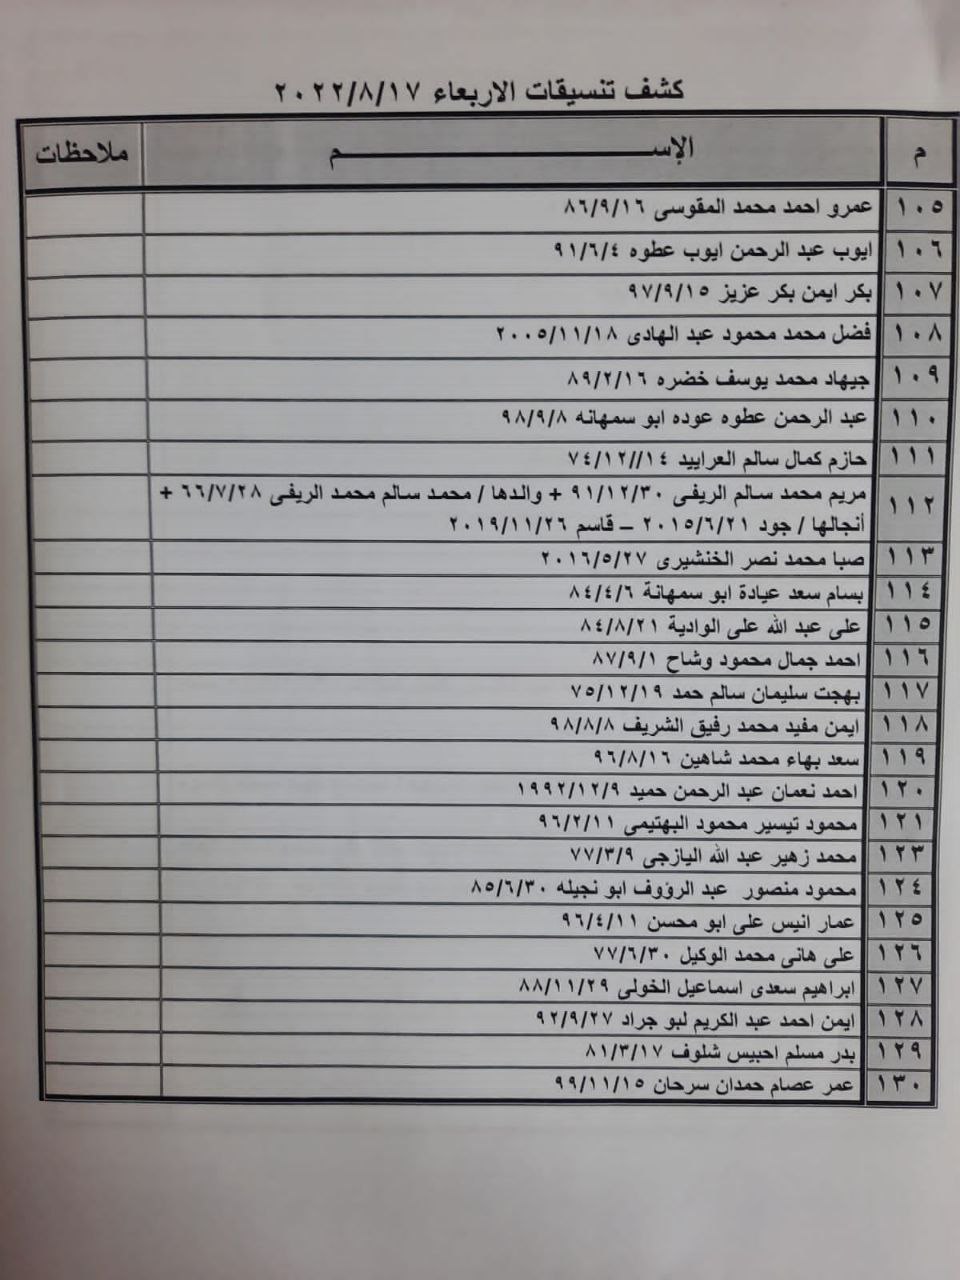 كشف تنسيقات الاربعاء ٢٠٢٢/٨/١٧
م الإســـــــــم ملاحظات
١٠٥ عمرو احمد محمد المقوسى ٨٦/٩/١٦
١٠٦ ايوب عبد الرحمن ايوب عطوه ٩١/٦/٤
١٠٧ بكر ايمن بكر عزيز ٩٧/٩/١٥
١٠٨ فضل محمد محمود عبد الهادى ٢٠٠٥/١١/١٨
١٠٩ جيهاد محمد يوسف خضره ٨٩/٢/١٦
١١٠ عبد الرحمن عطوه عوده ابو سمهانه ٩٨/٩/٨
١١١ حازم كمال سالم العرابيد ٧٤/١٢//١٤
١١٢ مريم محمد سالم الريفى ٩١/١٢/٣٠ + والدها / محمد سالم محمد الريفى ٦٦/٧/٢٨ +
أنجالها / جود ٢٠١٥/٦/٢١ – قاسم ٢٠١٩/١١/٢٦
١١٣ صبا محمد نصر الخنشيرى ٢٠١٦/٥/٢٧
١١٤ بسام سعد عيادة ابو سمهانة ٨٤/٤/٦
١١٥ على عبد الله على الوادية ٨٤/٨/٢١
١١٦ احمد جمال محمود وشاح ٨٧/٩/١
١١٧ بهجت سليمان سالم حمد ٧٥/١٢/١٩
١١٨ ايمن مفيد محمد رفيق الشريف ٩٨/٨/٨
١١٩ سعد بهاء محمد شاهين ٩٦/٨/١٦
١٢٠ احمد نعمان عبد الرحمن حميد ١٩٩٢/١٢/٩
١٢١ محمود تيسير محمود البهتيمى ٩٦/٢/١١
١٢٣ محمد زهير عبد الله اليازجى ٧٧/٣/٩
١٢٤ محمود منصور عبد الرؤوف ابو نجيله ٨٥/٦/٣٠
١٢٥ عمار انيس على ابو محسن ٩٦/٤/١١
١٢٦ على هانى محمد الوكيل ٧٧/٦/٣٠
١٢٧ ابراهيم سعدى اسماعيل الخولى ٨٨/١١/٢٩
١٢٨ ايمن احمد عبد الكريم لبو جراد ٩٢/٩/٢٧
١٢٩ بدر مسلم احبيس شلوف ٨١/٣/١٧
١٣٠ عمر عصام حمدان سرحان ٩٩/١١/١٥